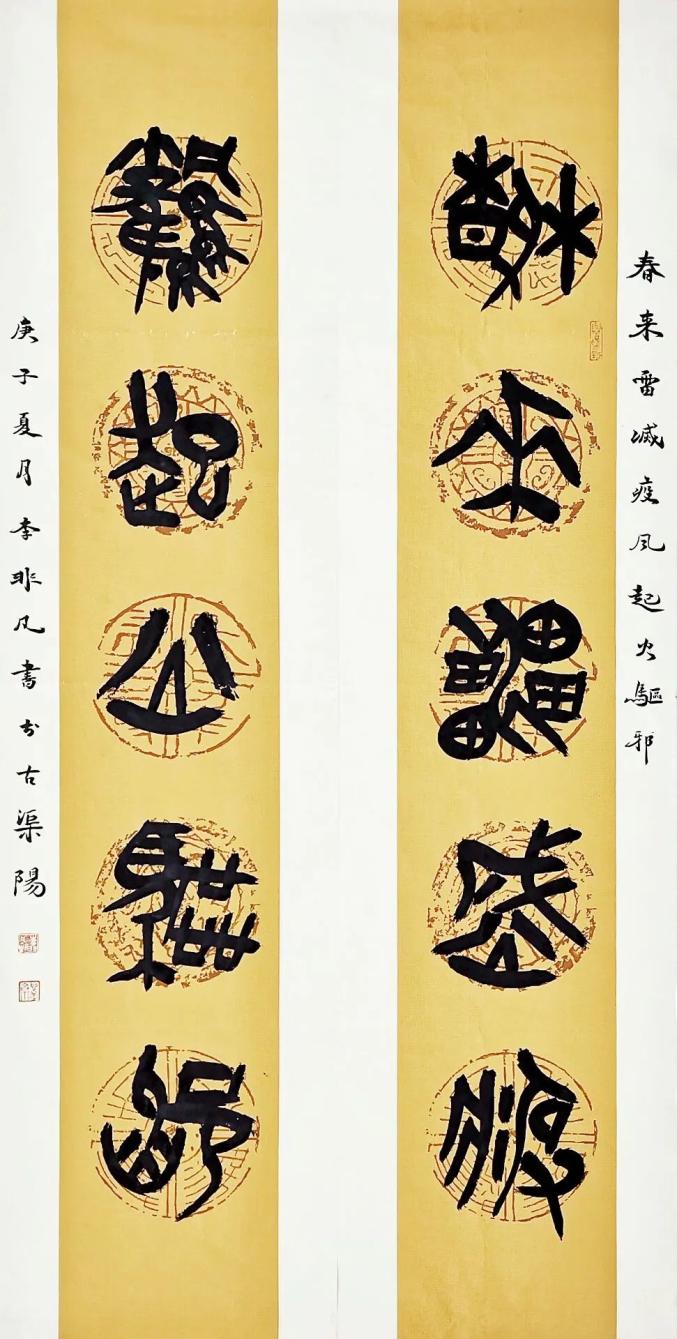 春来雷滅疫风起火驅邪
春来雷滅疫
風起火驅邪
庚子夏月李非凡書於古渠陽